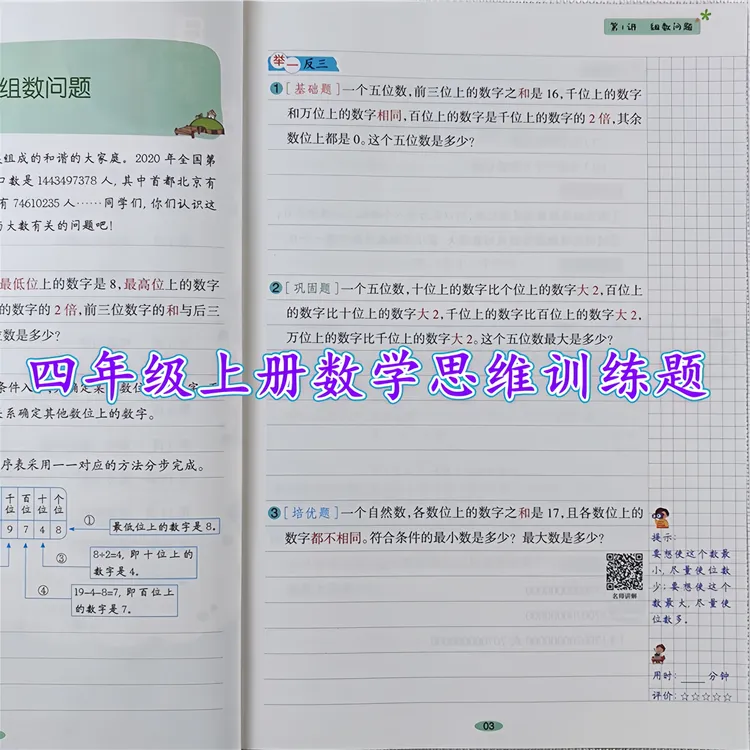 组数问题
组成的和谐的大家庭。2020 年全国第
口数是 1443497378 人, 其中首都北京有
有 74610235 人……同学们, 你们认识这
与大数有关的问题吧!
最低位上的数字是 8, 最高位上的数字
的数字的 2 倍, 前三位数字的和与后三
数是多少?
系确定其他数位上的数字。
序表采用一一对应的方法分步完成。
千位 百位 十位 个位
9 7 4 8
① 最低位上的数字是 8。
③ 8÷2=4, 即十位上的数字是 4。
④ 19-4-8=7, 即百位上的数字是 7。
第1讲 组数问题
举一反三
① [基础题] 一个五位数, 前三位上的数字之和是 16, 千位上的数字
和万位上的数字相同, 百位上的数字是千位上的数字的 2 倍, 其余
数位上都是 0。这个五位数是多少?
② [巩固题] 一个五位数, 十位上的数字比个位上的数字大 2, 百位上
的数字比十位上的数字大 2, 千位上的数字比百位上的数字大 2,
万位上的数字比千位上的数字大 2。这个五位数最大是多少?
四年级上册数学思维训练题
③ [培优题] 一个自然数, 各数位上的数字之和是 17, 且各数位上的
数字都不相同。符合条件的最小数是多少? 最大数是多少?
名师讲解
提示:
要想使这个数最
小, 尽量使位数
少; 要想使这个
数最大, 尽量使
位数多。
用时: 分钟
评价: ☆☆☆☆☆
03